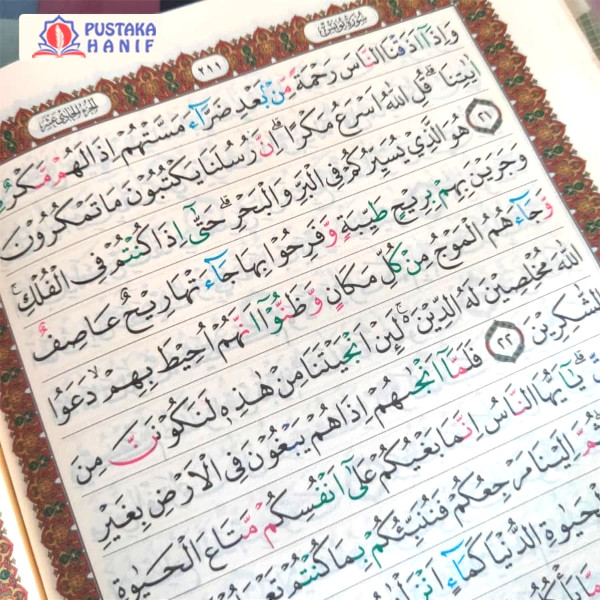 PUSTAKA
HANIF
٢١١
سُوْرَةُ يُوْنُسَ
وَاِذَآ اَذَقْنَا النَّاسَ رَحْمَةً مِّنْۢ بَعْدِ ضَرَّاۤءَ مَسَّتْهُمْ اِذَا لَهُمْ مَّكْرٌ
اٰيٰتِنَاۗ قُلِ اللّٰهُ اَسْرَعُ مَكْرًاۗ اِنَّ رُسُلَنَا يَكْتُبُوْنَ مَا تَمْكُرُوْنَ
٢١ هُوَ الَّذِيْ يُسَيِّرُكُمْ فِى الْبَرِّ وَالْبَحْرِۗ حَتّٰٓى اِذَا كُنْتُمْ فِى الْفُلْكِۚ
وَجَرَيْنَ بِهِمْ بِرِيْحٍ طَيِّبَةٍ وَّفَرِحُوْا بِهَا جَاۤءَتْهَا رِيْحٌ عَاصِفٌ
وَّجَاۤءَهُمُ الْمَوْجُ مِنْ كُلِّ مَكَانٍ وَّظَنُّوْٓا اَنَّهُمْ اُحِيْطَ بِهِمْۙ دَعَوُا
اللّٰهَ مُخْلِصِيْنَ لَهُ الدِّيْنَۚ لَىِٕنْ اَنْجَيْتَنَا مِنْ هٰذِهٖ لَنَكُوْنَنَّ مِنَ
الشّٰكِرِيْنَ ٢٢ فَلَمَّآ اَنْجٰىهُمْ اِذَا هُمْ يَبْغُوْنَ فِى الْاَرْضِ بِغَيْرِ
يٰٓاَيُّهَا النَّاسُ اِنَّمَا بَغْيُكُمْ عَلٰٓى اَنْفُسِكُمْ مَّتَاعَ الْحَيٰوةِ
ثُمَّ اِلَيْنَا مَرْجِعُكُمْ فَنُنَبِّئُكُمْ بِمَا كُنْتُمْ
الْحَيٰوةِ الدُّنْيَا كَمَاۤءٍ